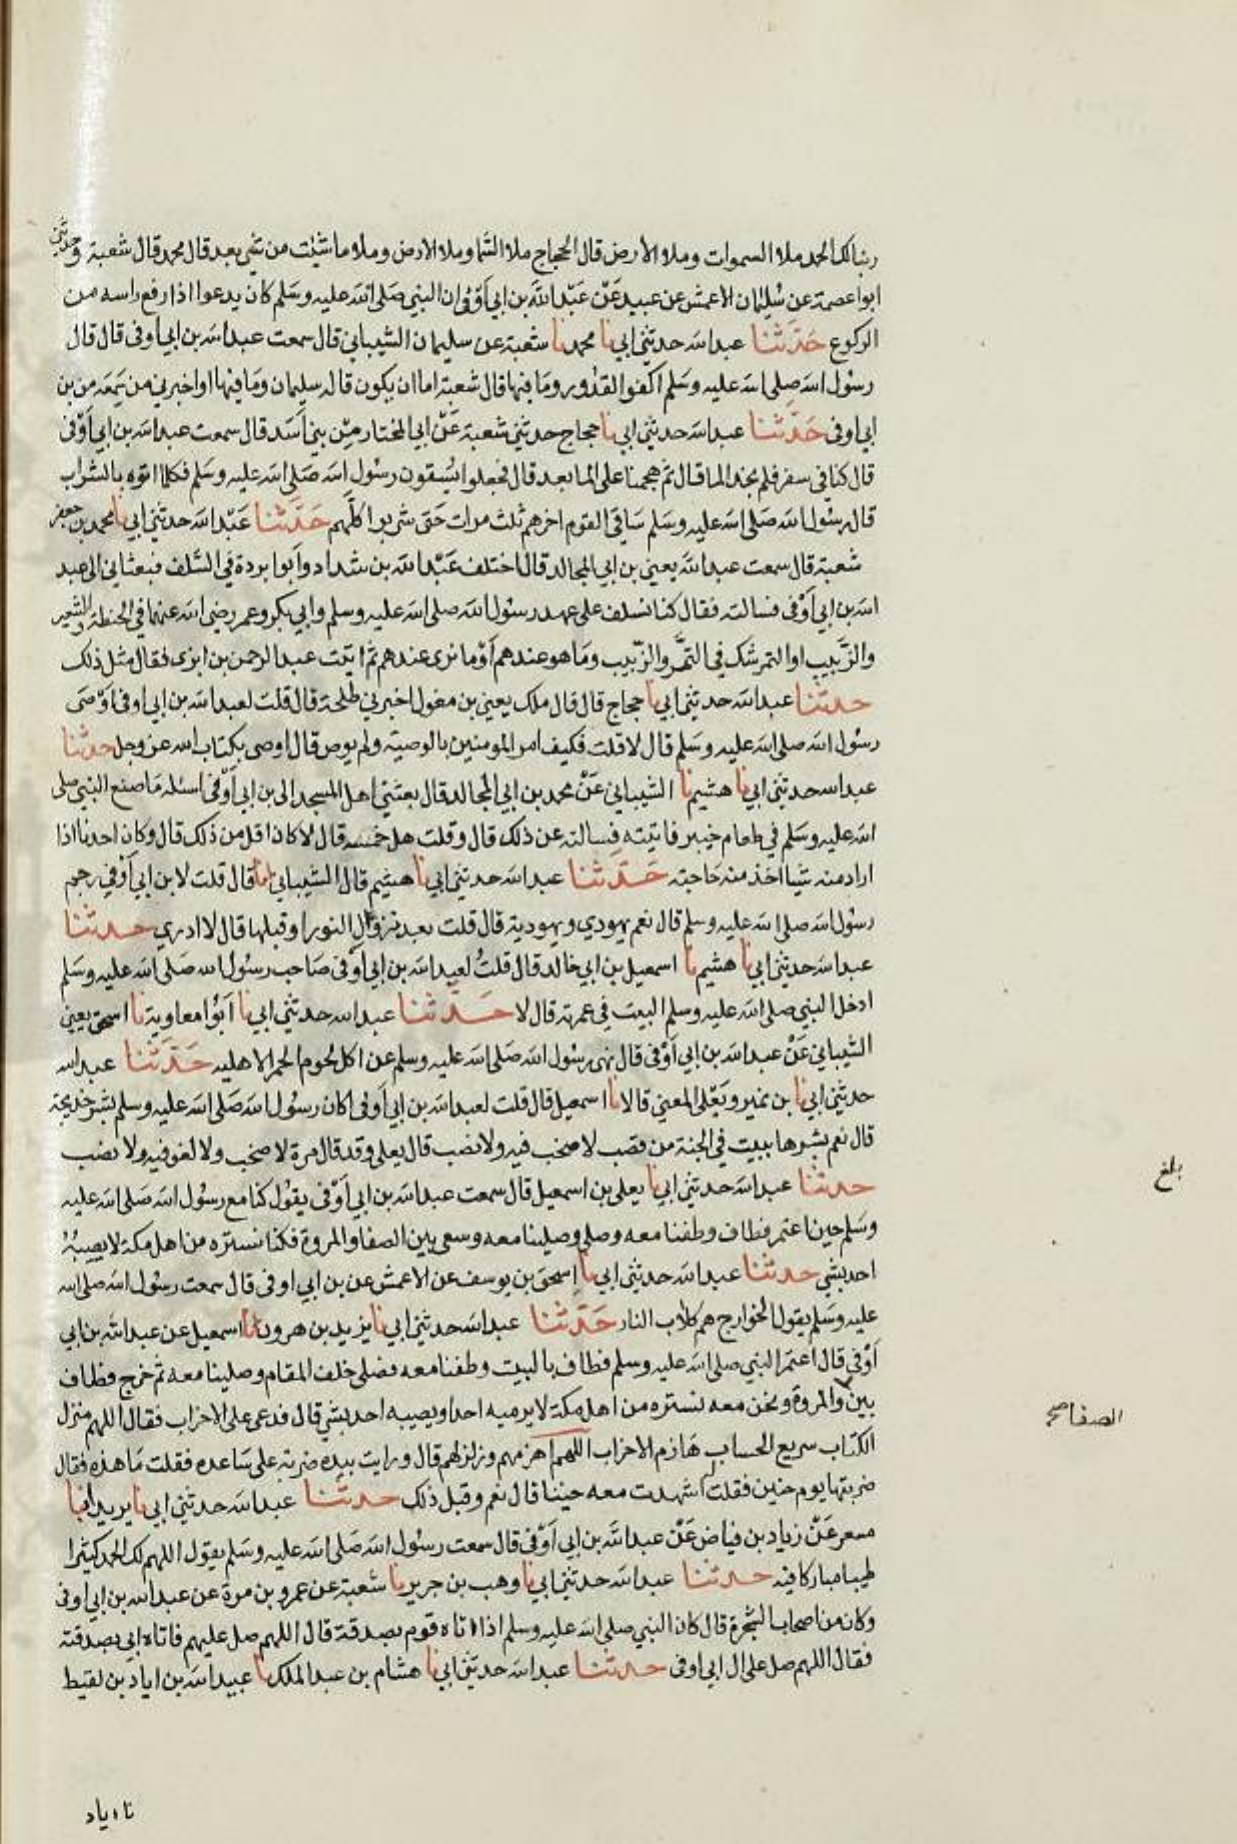 ربنا لك الحمد ملا السموات وملا الارض قال الحجاج ملا السما وملا الارض وملا ما شئت من شي بعد قال محمد قال شعبة وحدثني
ابو اعصمة عن سليمان الاعمش عن عبيد عن عبد الله بن ابي اوفى ان النبي صلى الله عليه وسلم كان يدعوا اذا رفع راسه من
الركوع حدثنا عبد الله حدثني ابي نا محمد نا شعبة عن سليمان الشيباني قال سمعت عبد الله بن ابي اوفى قال قال
رسول الله صلى الله عليه وسلم اكفوا القدور وما فيها قال شعبة اما ان يكون قاله سليمان وما فيها او اخبرني من سمعه من بن
ابي اوفى حدثنا عبد الله حدثني ابي نا حجاج حدثني شعبة عن ابي المختار من بني اسد قال سمعت عبد الله بن ابي اوفى
قال كنا في سفر فلم نجد الما قال ثم هجمنا على الما بعد قال فجعلوا يسقون رسول الله صلى الله عليه وسلم فكلما اتوه بالشراب
قال رسول الله صلى الله عليه وسلم ساقي القوم اخرهم ثلث مرات حتى شربوا كلهم حدثنا عبد الله حدثني ابي نا محمد بن جعفر
شعبة قال سمعت عبد الله يعني بن ابي المجالد قال اختلف عبد الله بن شداد وابو ابردة في السلف فبعثاني الى عبد
الله بن ابي اوفى فسالته فقال كنا نسلف على عهد رسول الله صلى الله عليه وسلم وابي بكر وعمر رضي الله عنهما في الحنطة والشعير
والزبيب او التمر شك في التمر والزبيب وما هو عندهم او ما نرى عندهم ثم اتيت عبد الرحمن بن ابزى فقال مثل ذلك
حدثنا عبد الله حدثني ابي نا حجاج قال قال ملك يعني بن مغول اخبرني طلحة قال قلت لعبد الله بن ابي اوفى اوصى
رسول الله صلى الله عليه وسلم قال لا قلت فكيف امر المومنين بالوصية ولم يوص قال اوصى بكتاب الله عز وجل حدثنا
عبد الله حدثني ابي نا هشيم نا الشيباني عن محمد بن ابي المجالد قال بعثني اهل المسجد الى بن ابي اوفى اسئله ما صنع النبي صلى
الله عليه وسلم في طعام خيبر فاتيته فسالته عن ذلك قال وقلت هل خمسه قال لا كان اقل من ذلك قال وكان احدنا اذا
اراد منه شيا اخذ منه حاجته حدثنا عبد الله حدثني ابي نا هشيم قال الشيباني انا قال قلت لابن ابي اوفى رجم
رسول الله صلى الله عليه وسلم قال نعم يهودي ويهودية قال قلت بعد نزول النور او قبلها قال لا ادري حدثنا
عبد الله حدثني ابي نا هشيم نا اسمعيل بن ابي خالد قال قلت لعبد الله بن ابي اوفى صاحب رسول الله صلى الله عليه وسلم
ادخل النبي صلى الله عليه وسلم البيت في عمرته قال لا حدثنا عبد الله حدثني ابي نا ابو امعاوية نا اسحق يعني
الشيباني عن عبد الله بن ابي اوفى قال نهى رسول الله صلى الله عليه وسلم عن اكل لحوم الحمر الاهليه حدثنا عبد الله
حدثني ابي نا بن نمير ويعلى المعنى قالا نا اسمعيل قال قلت لعبد الله بن ابي اوفى اكان رسول الله صلى الله عليه وسلم بشر خديجة
قال نعم بشرها ببيت في الجنة من قصب لا صخب فيه ولا نصب قال يعلى وقد قال مرة لا صخب ولا لغو فيه ولا نصب
حدثنا عبد الله حدثني ابي نا يعلى بن اسمعيل قال سمعت عبد الله بن ابي اوفى يقول كنا مع رسول الله صلى الله عليه
وسلم حين اعتمر فطاف وطفنا معه وصلى وصلينا معه وسعى بين الصفا والمروة فكنا نستره من اهل مكة لا يصيبه
احد بشي حدثنا عبد الله حدثني ابي نا اسحق بن يوسف عن الاعمش عن بن ابي اوفى قال سمعت رسول الله صلى الله
عليه وسلم يقول الخوارج هم كلاب النار حدثنا عبد الله حدثني ابي نا يزيد بن هرون انا اسمعيل عن عبد الله بن ابي
اوفى قال اعتمر النبي صلى الله عليه وسلم فطاف بالبيت وطفنا معه فصلى خلف المقام وصلينا معه ثم خرج فطاف
بين والمروة ونحن معه نستره من اهل مكة لا يرميه احد او يصيبه احد بشي قال فدعى على الاحزاب فقال اللهم منزل
الكتاب سريع الحساب هازم الاحزاب اللهم اهزمهم وزلزلهم قال ورايت بيده ضربة على ساعده فقلت ما هذه فقال
ضربتها يوم حنين فقلت له اشهدت معه حنينا قال نعم وقبل ذلك حدثنا عبد الله حدثني ابي نا يزيد انبا
مسعر عن زياد بن فياض عن عبد الله بن ابي اوفى قال سمعت رسول الله صلى الله عليه وسلم يقول اللهم لك الحمد كثيرا
طيبا مباركا فيه حدثنا عبد الله حدثني ابي نا وهب بن جرير نا شعبة عن عمرو بن مرة عن عبد الله بن ابي اوفى
وكان من اصحاب الشجرة قال كان النبي صلى الله عليه وسلم اذا اتاه قوم بصدقة قال اللهم صل عليهم فاتاه ابي بصدقته
فقال اللهم صل على ال ابي اوفى حدثنا عبد الله حدثني ابي نا هشام بن عبد الملك نا عبيد الله بن اياد بن لقيط
بلغ
الصفا صح
نا اياد